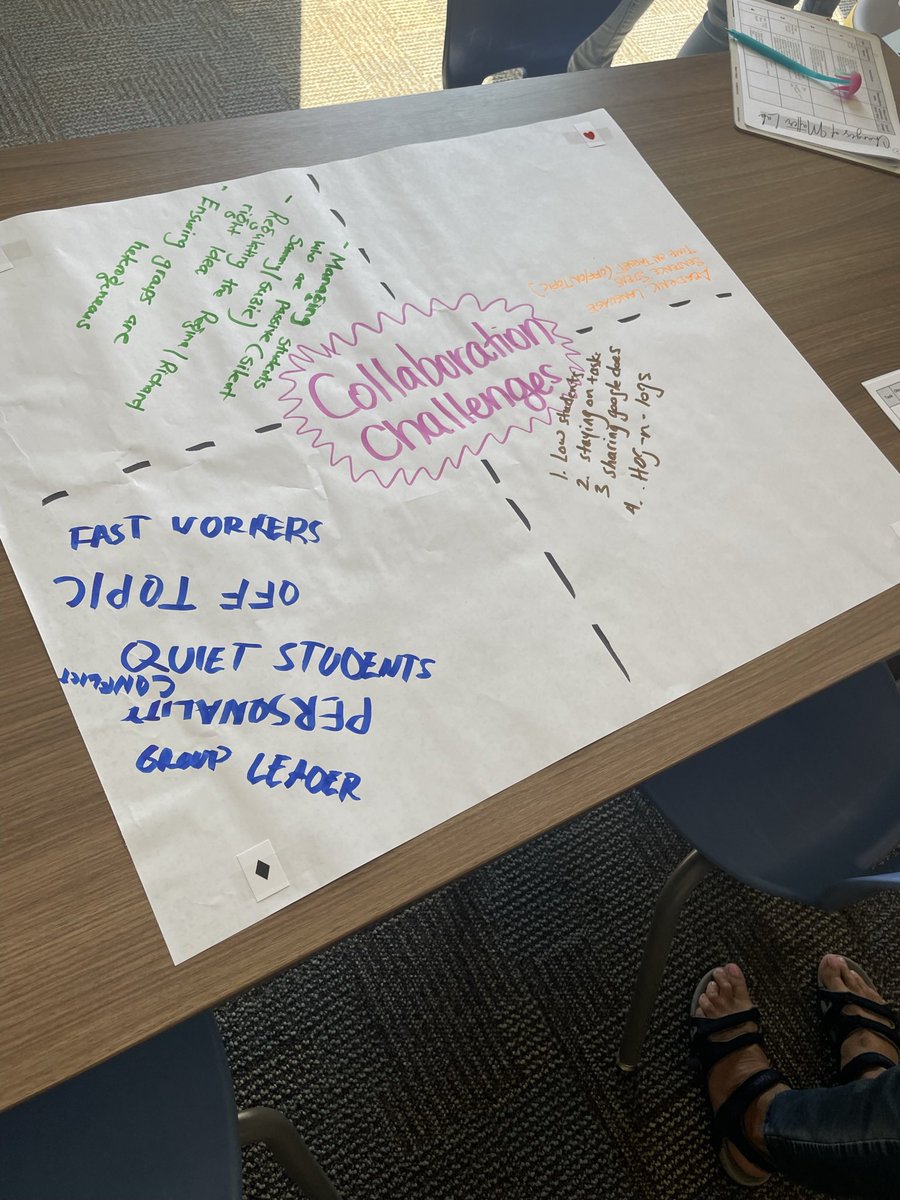 Collaboration
Challenges
- Managing students
who are passive (silent
Sammy/Suzie)
- Regulating to the
right idea. Regina/Richard
- Ensuring groups are
heterogeneous
ACADEMIC LANGUAGE
SENTENCE STEMS
TIME ON TARGET (OFF/ON TOPIC)
1. Low students
2. staying on task
3 sharing google docs
4. Hog-n-logs
FAST WORKERS
OFF TOPIC
QUIET STUDENTS
PERSONALITY
CONFLICT
GROUP LEADER
Changes of Matter Lab